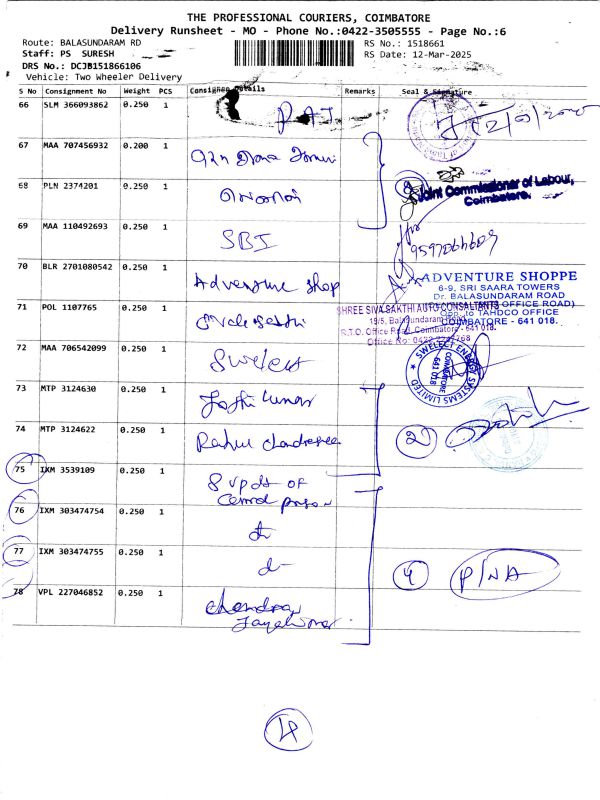 THE PROFESSIONAL COURIERS, COIMBATORE
Delivery Runsheet - MO - Phone No.:0422-3505555 - Page No.:6
Route: BALASUNDARAM RD
RS No.: 1518661
Staff: PS SURESH
RS Date: 12-Mar-2025
DRS No.: DCJB151866106
Vehicle: Two Wheeler Delivery
S No Consignment No Weight PCS Consignee Details Remarks Seal & Signature
66 SLM 366093862 0.250 1
67 MAA 707456932 0.200 1
68 PLN 2374201 0.250 1
Joint Commissioner of Labour,
Coimbatore.
69 MAA 110492693 0.250 1 SBI
9597066609
70 BLR 2701080542 0.250 1 Adventure shop
ADVENTURE SHOPPE
6-9, SRI SAARA TOWERS
Dr. BALASUNDARAM ROAD
OFFICE ROAD)
Opp. to TAHDCO OFFICE
COIMBATORE - 641 018.
71 POL 1107765 0.250 1
SHREE SIVA SAKTHI AUTO CONSULTANTS
19/5, Balasundaram Road
R.T.O. Office Road, Coimbatore - 641 018.
Office No: 0422
72 MAA 706542099 0.250 1 Swelect
SWELECT ENERGY SYSTEMS LIMITED
COIMBATORE
641 018
73 MTP 3124630 0.250 1
74 MTP 3124622 0.250 1 Rahul
2
75 IXM 3539109 0.250 1 8 updt of
Central prison
76 IXM 303474754 0.250 1
77 IXM 303474755 0.250 1
4 P/NA
78 VPL 227046852 0.250 1 Chandra